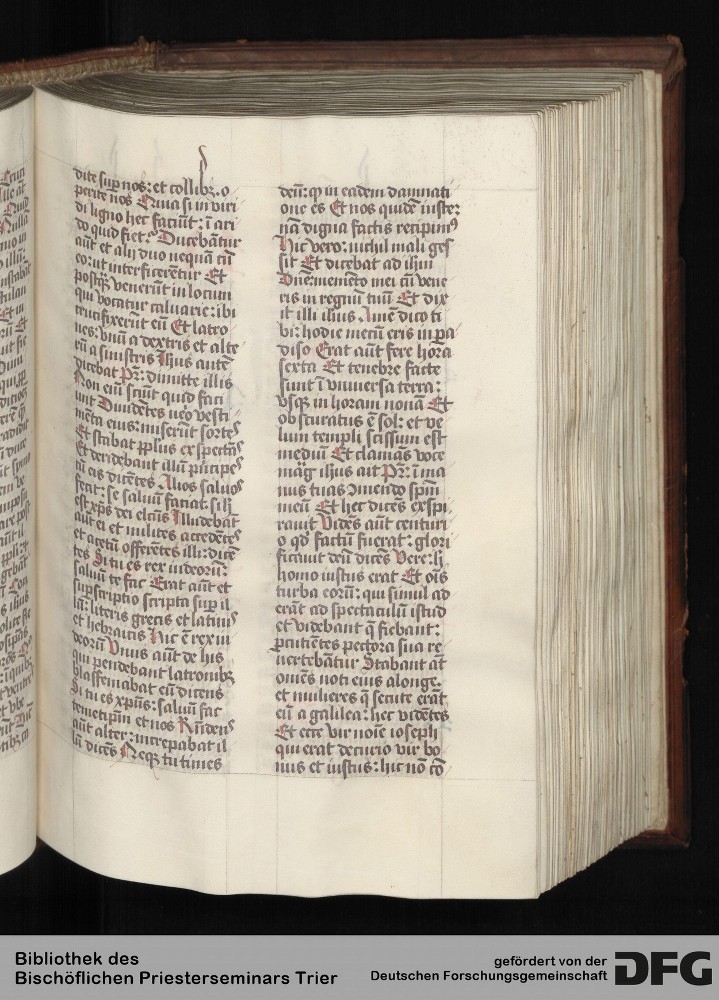 dite sup nos: et collibꝫ. o
perite nos Quia si in viri
di ligno hec faciūt: ī ari
do quid fiet? Ducebātur
aūt et alij duo nequā cū
eo: ut interficerētur Et
postqꝫ venerūt in locum
qui vocatur caluarie: ibi
crucifixerūt eū Et latro
nes: vnū a dextris et alte
rū a sinistris Ihūs autē
dicebat Pr̄: dimitte illis
Non eim̄ sciūt quid faci
unt Diuidētes ūeo vesti
mēta eius: miserūt sortes
Et stabat pplus exspectās
Et deridebant illū pncipes
cū eis dicētes Alios saluos
fecit: se saluū faciat. si h̄
est xp̄s dei elcūs Illudebāt
aūt ei et milites accedētes
et acetū offerētes illi: dicē
tes Si tu es rex iudeorū:
saluū te fac Erat aūt et
supscriptio scripta sup il
lū: literis grecis et latinis
et hebraicis Hic ē rex iu
deorū Vnus aūt de his
qui pendebant latronibꝫ
blasfemabat eū dicens
Si tu es xp̄us: saluū fac
temetip̄m et nos Rn̄dens
aūt alter: increpabat il
lū dicēs Neqꝫ tu times
deū: qꝫ in eadem damnati
one es Et nos quidē iuste:
nā digna factis recipimꝰ
Hic vero: nichil mali ges
sit Et dicebat ad ihm̄
Dn̄e: memēto mei cū vene
ris in regnū tuū Et dix
it illi ihūs Amē dico ti
bi: hodie mecū eris in pa
diso Erat aūt fere hora
sexta Et tenebre facte
sunt ī vniuersa terra:
vsqꝫ in horam nonā Et
obscuratus ē sol: et ve
lum templi scissum est
mediū Et clamās voce
mag̃ ihūs ait Pr̄: ī ma
nus tuas ꝯmendo spm̄
meū Et hec dicēs exspi
rauit Vidēs aūt centuri
o qd̄ factū fuerat: glori
ficauit deū dicēs Vere: h̄
homo iustus erat Et oīs
turba eorū: qui simul ad
erāt ad spectaculū istud
et videbant q̄ fiebant:
pcutiētes pectora sua re
uertebātur Stabant āt
omēs noti eius alonge:
et mulieres q̄ secute erāt
eū a galilea: hec vidētes
Et ecce vir noīe ioseph
qui erat decurio vir bo
nus et iustus: hic nō cō
Bibliothek des
Bischöflichen Priesterseminars Trier
gefördert von der
Deutschen Forschungsgemeinschaft
DFG